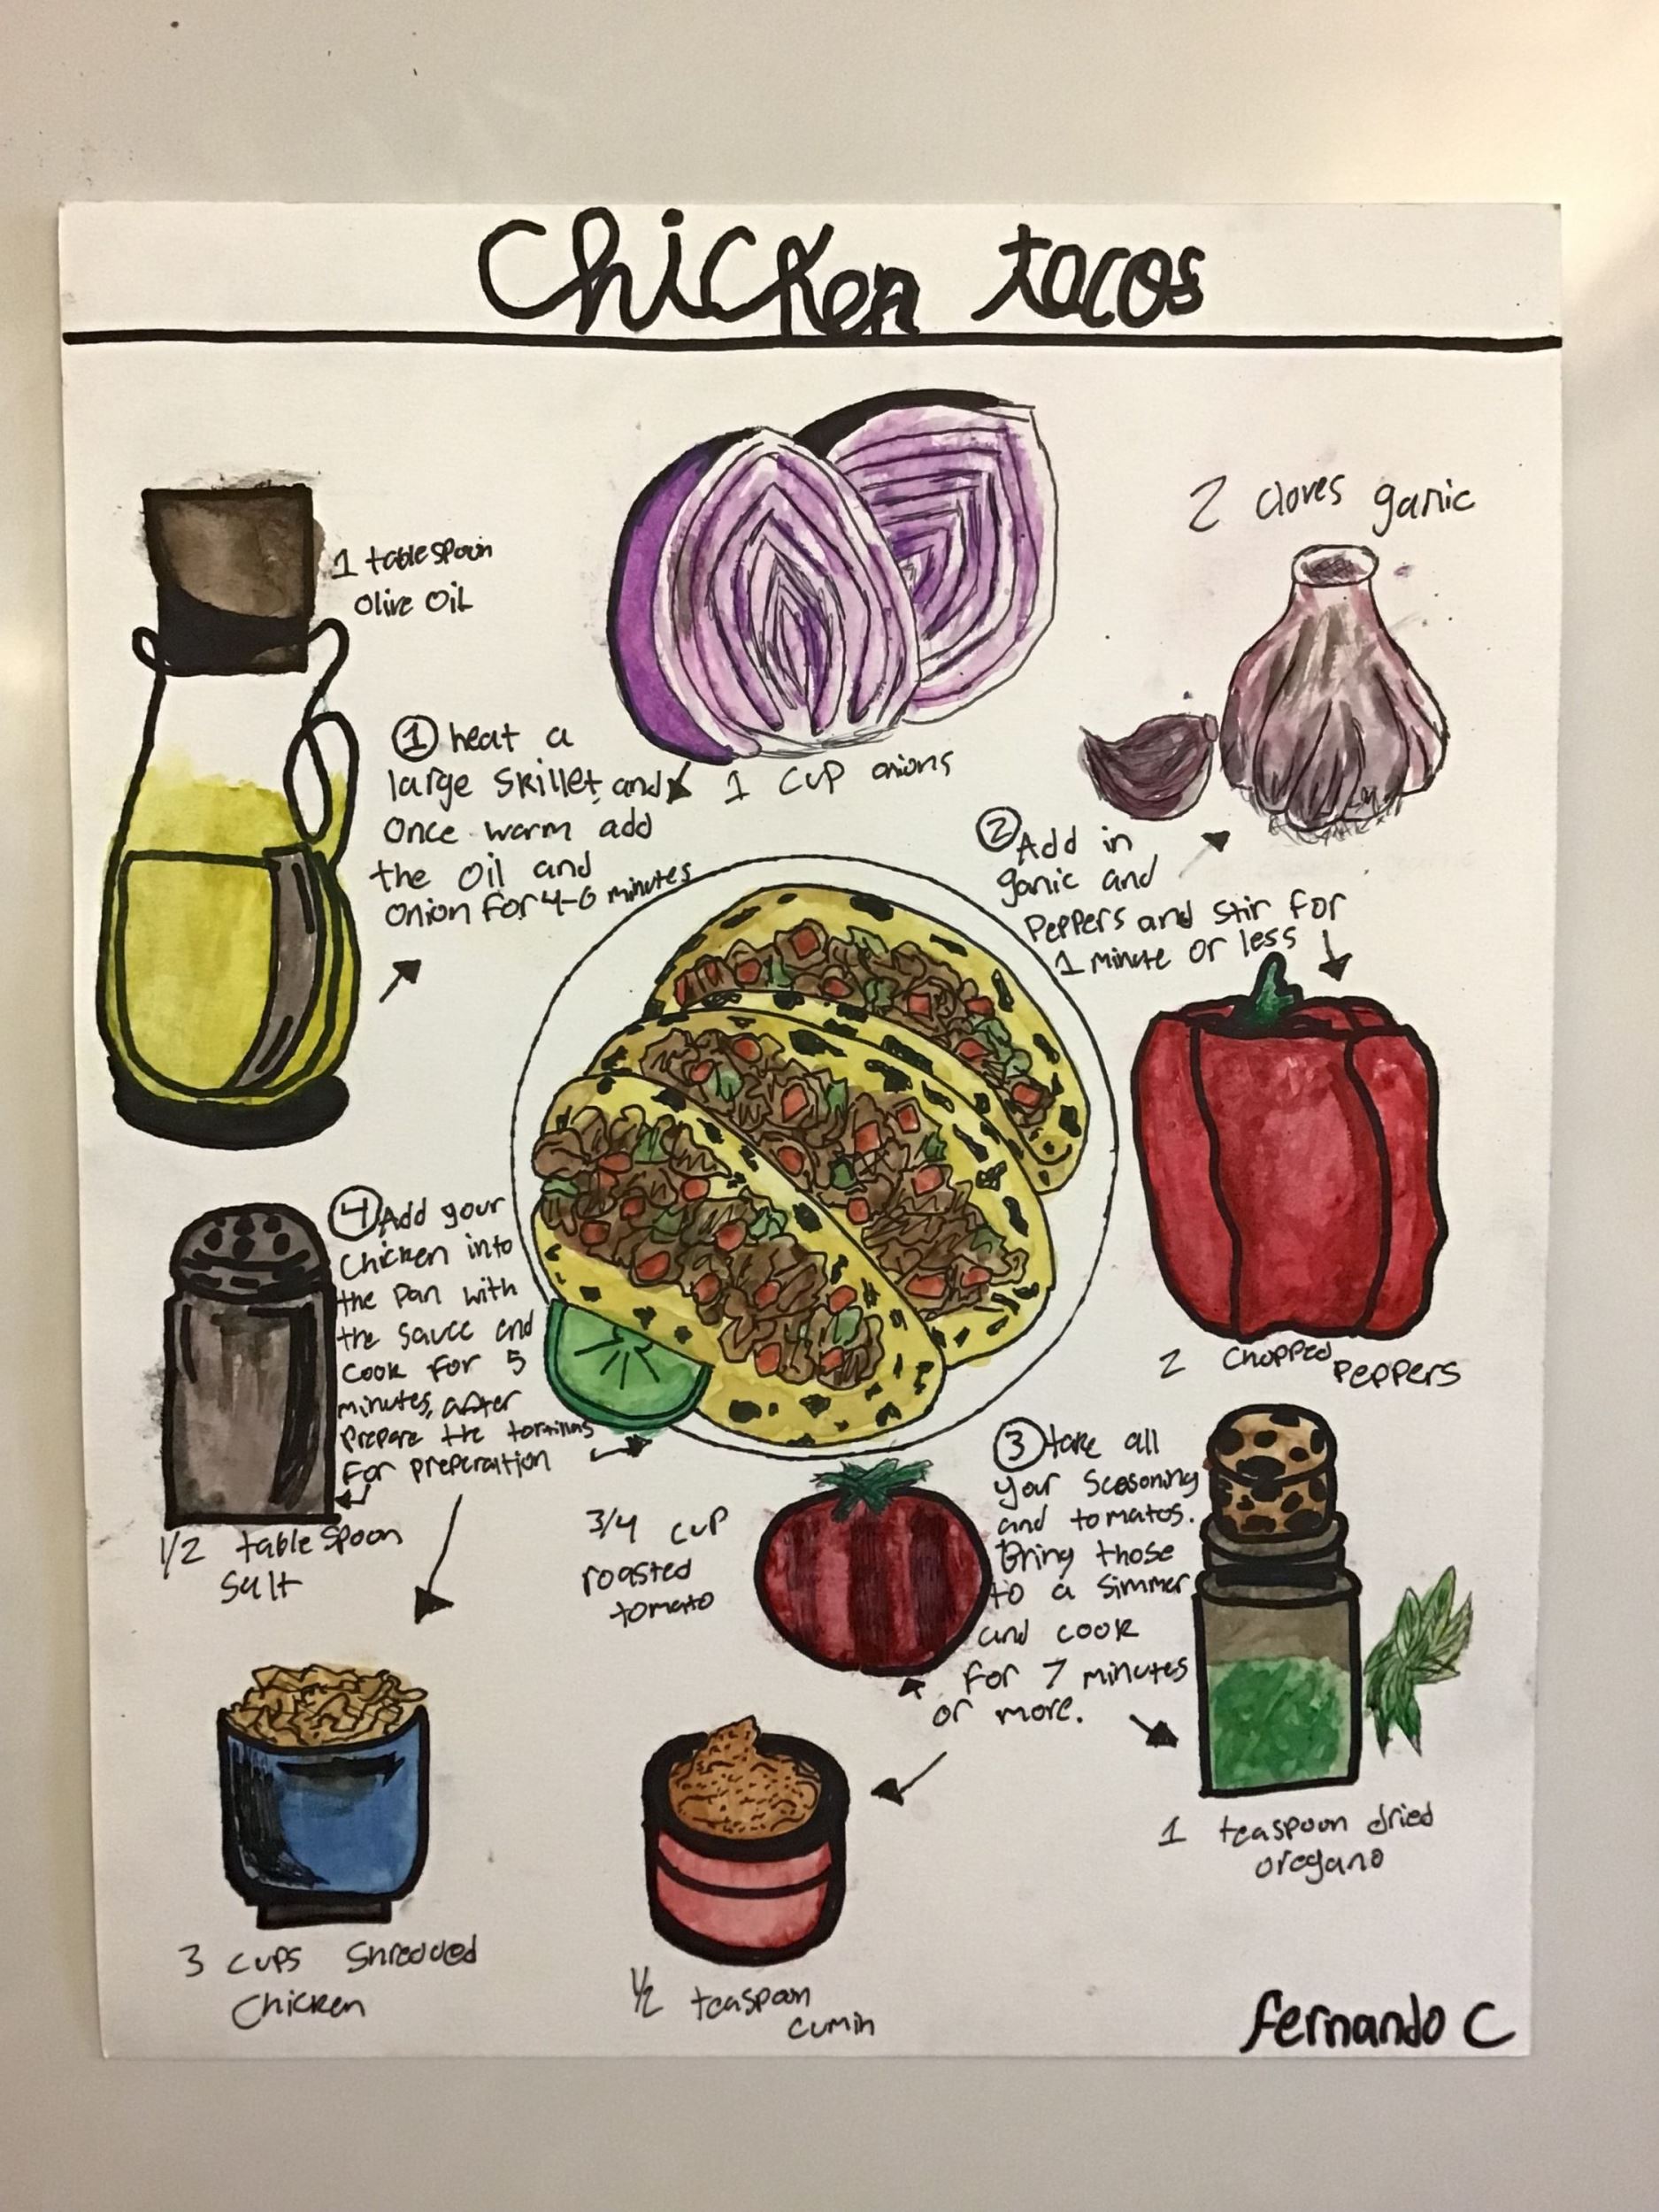 Chicken tacos
1 tablespoon
Olive Oil
① heat a
large skillet, and
Once warm add
the Oil and
Onion for 4-6 minutes
1 cup onions
2 cloves garlic
② Add in
garlic and
Peppers and stir for
1 minute or less
2 chopped Peppers
④ Add your
chicken into
the pan with
the sauce and
cook for 5
minutes, after
prepare the tortillas
for preparation
1/2 tablespoon
salt
3/4 cup
roasted
tomato
③ take all
your seasoning
and tomatos.
Bring those
to a simmer
and cook
for 7 minutes
or more.
1 teaspoon dried
oregano
3 cups shredded
chicken
1/2 teaspoon
cumin
fernando C